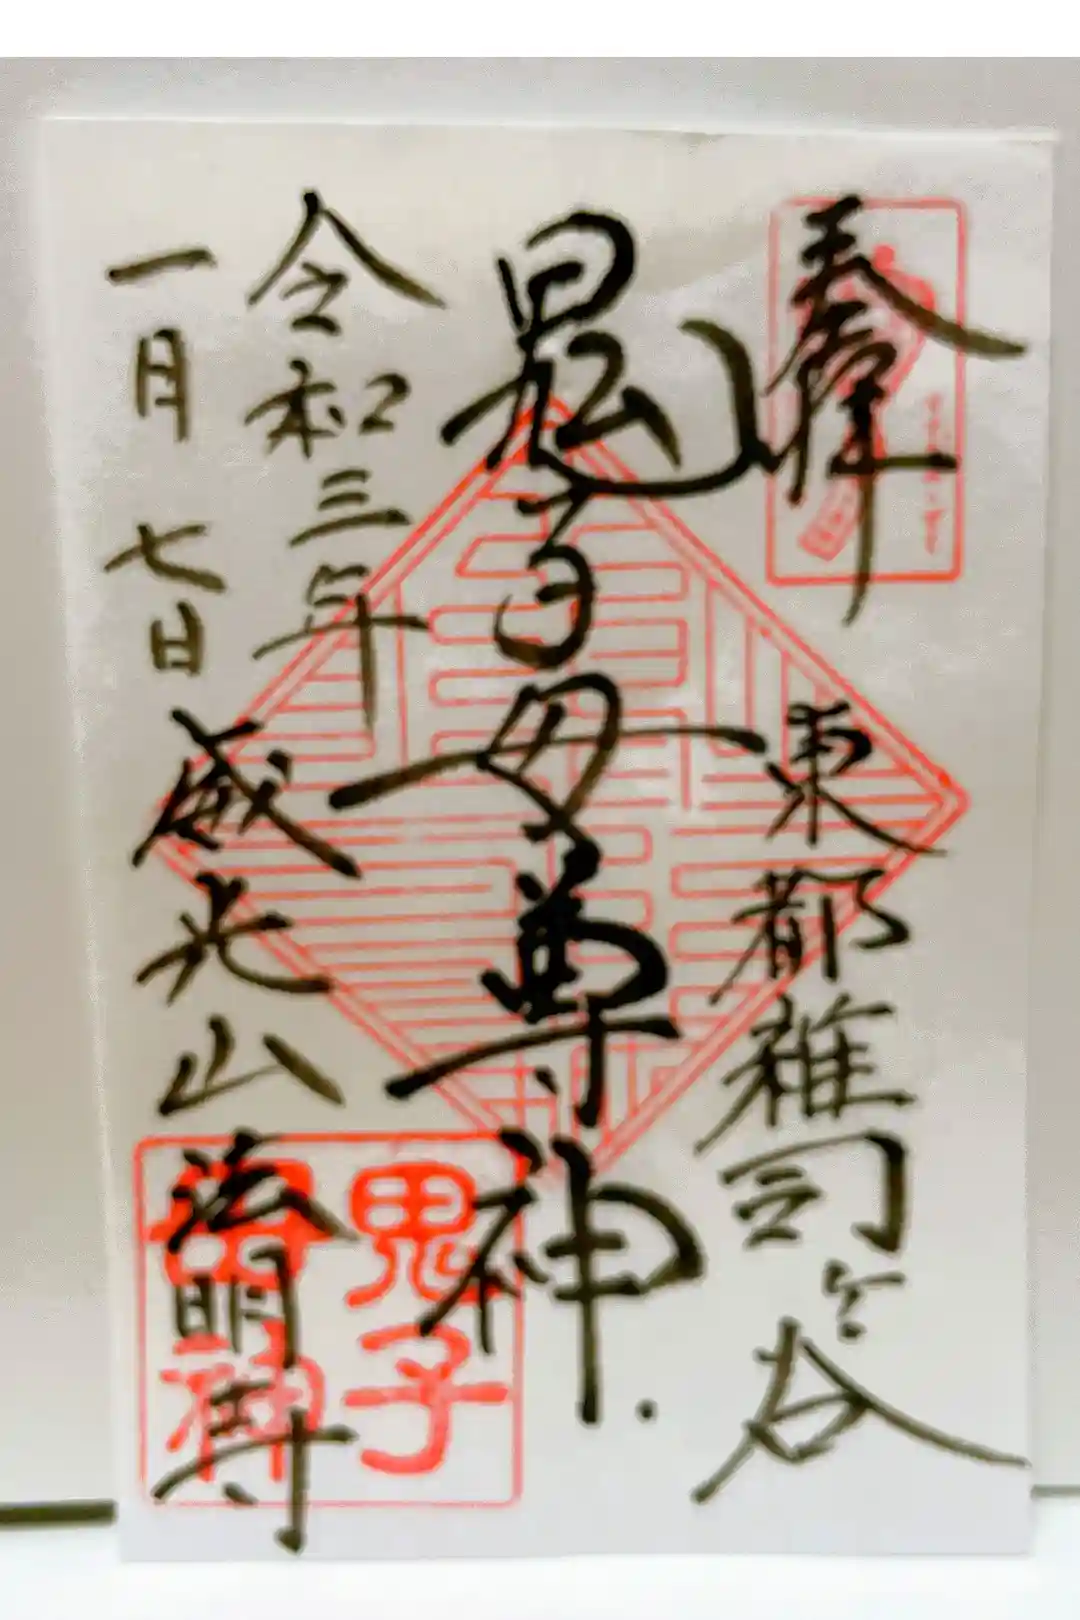 奉拝
東都雑司ヶ谷
鬼子母尊神
令和三年
一月七日
威光山法明寺
鬼子
神